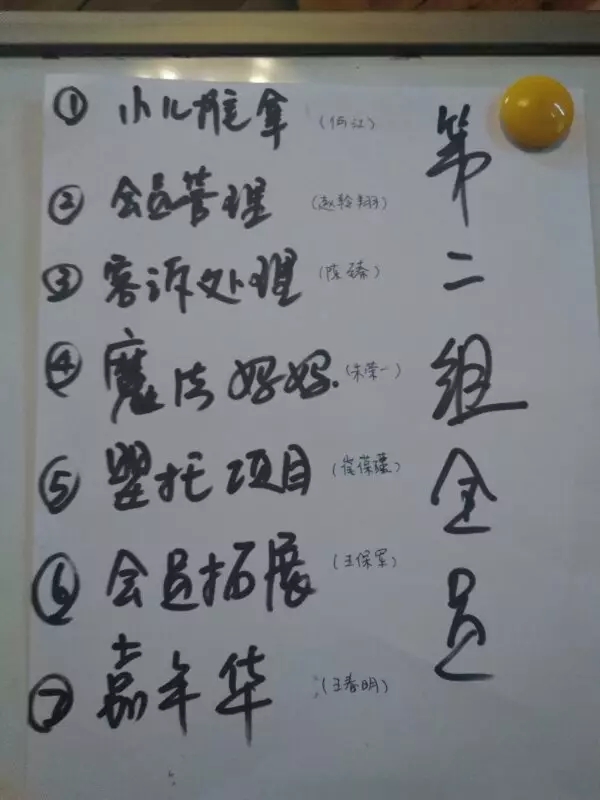 第二组全员
① 小儿推拿 (何江)
② 会员管理 (赵羚翔)
③ 客诉处理 (陈臻)
④ 魔法妈妈. (朱荣一)
⑤ 婴托项目 (崔葆蘊)
⑥ 会员拓展 (王保军)
⑦ 嘉年华 (王春明)